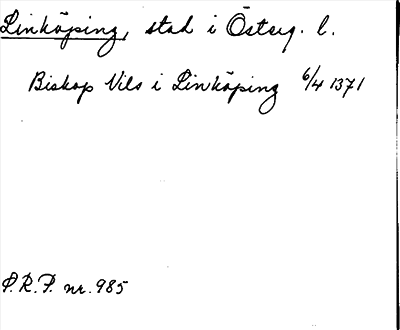 Linköping, stad i Östrg. l.
Biskop Nils i Linköping 6/4 1371
P.R.P. nr. 985